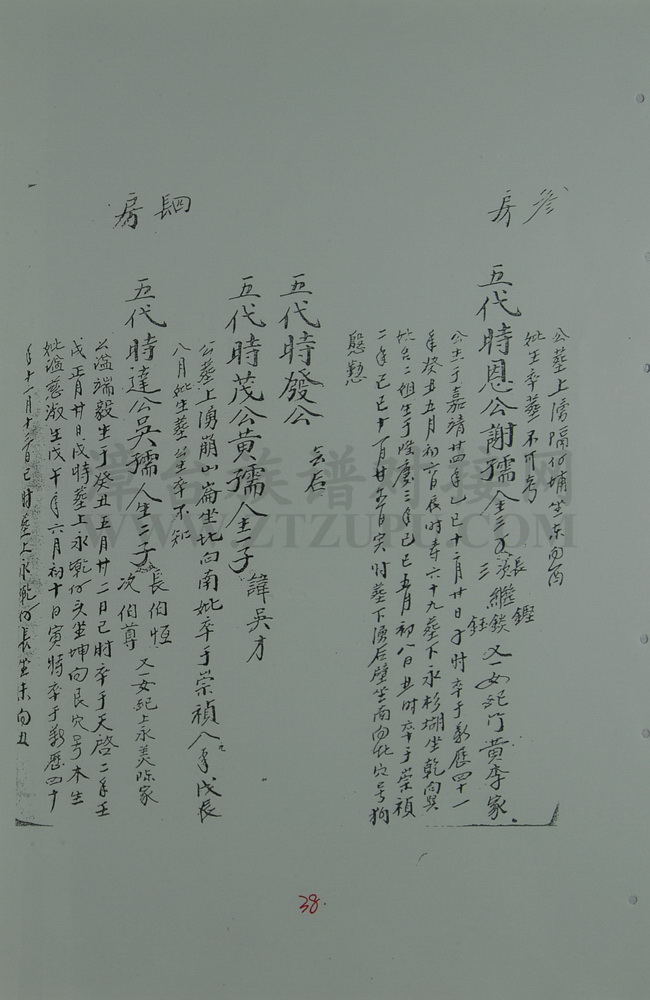 叁房
公墓上湧隔仔埔坐东向酉
妣生卒葬不可考
五代時恩公謝孺人生三子
長繼鏗
次繼鋑
三繼鈺
又一女
黄李家
公生于嘉靖廿四年乙巳十二月廿日子时卒于萬歷四十一
年癸丑五月初六日辰时寿六十九葬下永杉坳坐乾向巽
妣谷二姐生于隆慶三年己巳五月初八日丑时卒于崇禎
二年己巳十一月廿五日寅时葬下湧后壁坐南向北穴号狗
懸愁
五代時發公
無后
五代時茂公黄孺人生一子
諱吴才
公葬上湧崩山崙坐北向南妣卒于崇禎八年戊辰
八月妣生葬公生卒不知
四房
五代時達公吴孺人生二子
長伯恒
次伯尊
又一女
上永美陈家
公謚端毅生于癸丑五月廿二日巳时卒于天啓二年壬
戌正月廿日戌時葬上永乾仔头坐坤向艮穴号木生
妣謚慈淑生戊午年六月初十日寅時卒于萬歷四十
年十一月十三日巳时葬上永乾仔長坐未向丑
38.
章台族譜對接网
WWW.ZTZUPU.COM